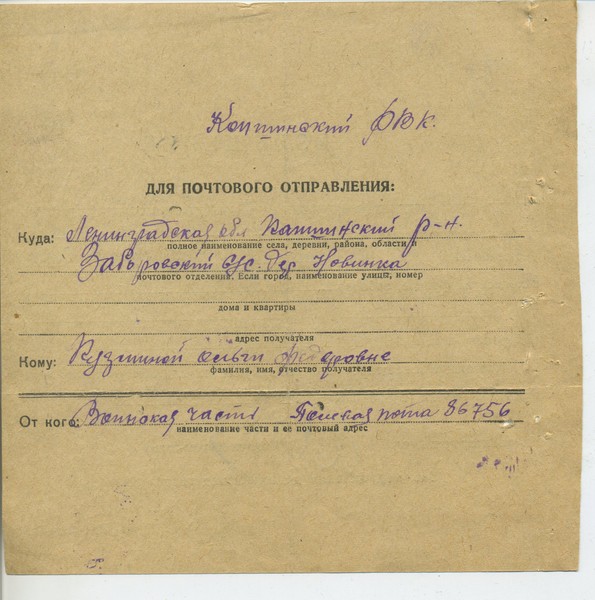 Капшинский РВК.
ДЛЯ ПОЧТОВОГО ОТПРАВЛЕНИЯ:
Куда: Ленинградская обл Капшинский р-н.
полное наименование села, деревни, района, области и
Заборовский с/с. дер. Новинка
почтового отделения. Если город, наименование улицы, номер
дома и квартиры
адрес получателя
Кому: Кузминой Ольги Федоровне
фамилия, имя, отчество получателя
От кого: Воинская часть Полевая почта 86756
наименование части и ее почтовый адрес